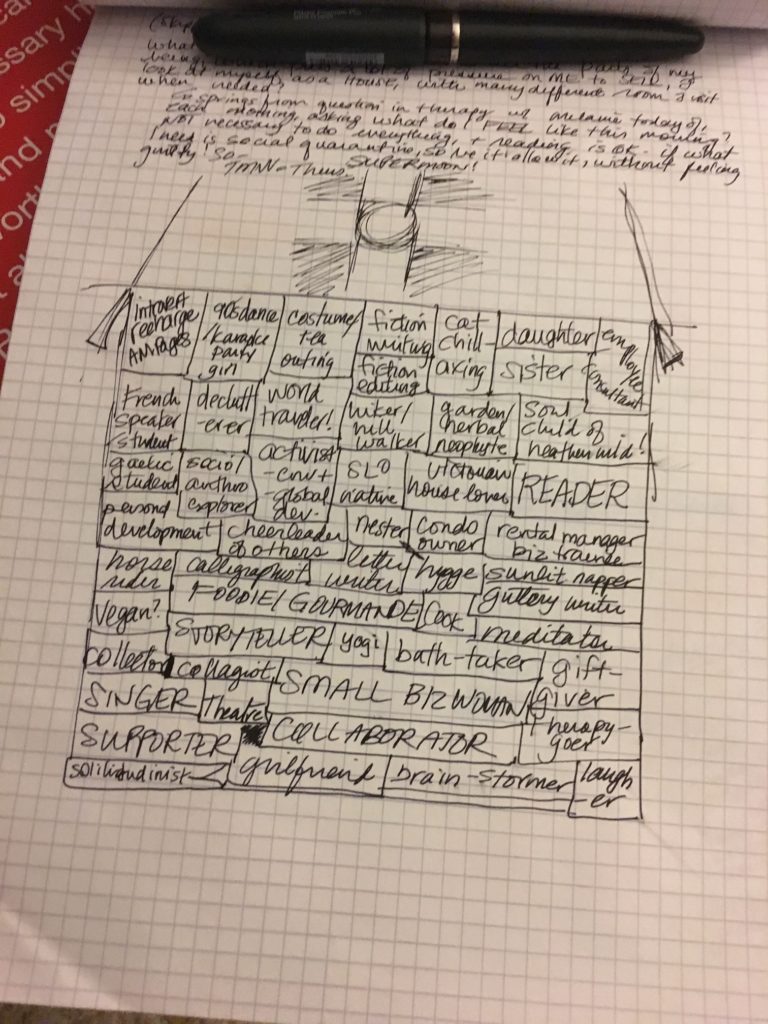 ssary h
o simp
nd
wort
(skip
What
being, of pressure on ME to
look at myself, as a HOUSE, with many different rooms I visit
when needed?
Springs from question in therapy w/ melanie today of,
each morning, asking what do I FEEL like this morning?
NOT necessary to do everything, + reading is OK - if what
I need is social quarantine, so be it, allow it, without feeling
guilty! So-
TMW = Thurs. SUPERMOON!
introvert recharge RAMPAGES
90s dance /karaoke party girl
costume/ tea outing
fiction writing
cat chill-
daughter
employee consultant
fiction editing
axing
sister
French speaker /student
declutt -erer
world traveler!
hiker/ hill walker
garden/ herbal neophyte
Soul child of heather wild!
gaelic student
socio/ anthro explorer
activist -env+ -global dev.
SLO native
victorian house lover
READER
personal development
cheerleader of others
nester
condo owner
rental manager biz trainee
horse rider
calligraphist
letter writer
hygge
sunlit napper
Vegan?
FOODIE/ GOURMANDE
Cook
gutery writer
STORYTELLER
yogi
bath-taker
meditator
collector
collagist
SMALL BIZ WOMAN
gift- giver
SINGER
Theatre
SUPPORTER
COLLABORATOR
therapy- goer
solilitudinist
girlfriend
brain-stormer
laugh -er